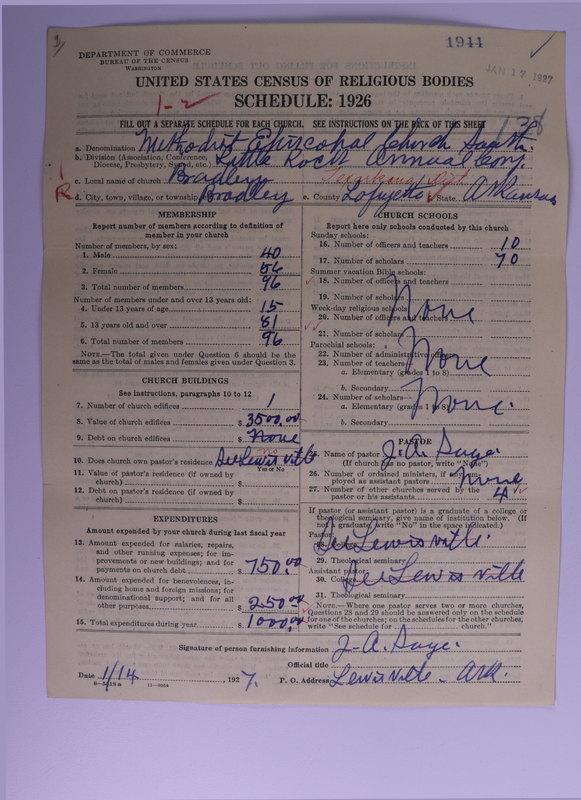 1944
DEPARTMENT OF COMMERCE
BUREAU OF THE CENSUS
WASHINGTON
JAN 17 1927
UNITED STATES CENSUS OF RELIGIOUS BODIES
1-2
SCHEDULE: 1926
FILL OUT A SEPARATE SCHEDULE FOR EACH CHURCH. SEE INSTRUCTIONS ON THE BACK OF THIS SHEET
a. Denomination Methodist Episcopal Church South.
b. Division (Association, Conference, Diocese, Presbytery, Synod, etc.) Little Rock Annual Conf.
c. Local name of church Bradley Texarkana Dist
R
d. City, town, village, or township Bradley e. County Lafayette State Arkansas
MEMBERSHIP
Report number of members according to definition of member in your church
Number of members, by sex:
1. Male 40
2. Female 56
3. Total number of members 96
Number of members under and over 13 years old:
4. Under 13 years of age 15
5. 13 years old and over 81
6. Total number of members 96
NOTE.—The total given under Question 6 should be the same as the total of males and females given under Question 3.
CHURCH BUILDINGS
See instructions, paragraphs 10 to 12
7. Number of church edifices 1
8. Value of church edifices $ 3500.00
9. Debt on church edifices $ None
10. Does church own pastor's residence See Lewisville no
Yes or No
11. Value of pastor's residence (if owned by church) $
12. Debt on pastor's residence (if owned by church) $
EXPENDITURES
Amount expended by your church during last fiscal year
13. Amount expended for salaries, repairs, and other running expenses; for improvements or new buildings; and for payments on church debt $ 750.00
14. Amount expended for benevolences, including home and foreign missions; for denominational support; and for all other purposes $ 250.00
15. Total expenditures during year $ 1000.00
CHURCH SCHOOLS
Report here only schools conducted by this church
Sunday schools:
16. Number of officers and teachers 10
17. Number of scholars 70
Summer vacation Bible schools:
18. Number of officers and teachers
19. Number of scholars None
Week-day religious schools:
20. Number of officers and teachers
21. Number of scholars
Parochial schools:
22. Number of administrative officers None
23. Number of teachers—
a. Elementary (grades 1 to 8)
b. Secondary
24. Number of scholars—
a. Elementary (grades 1 to 8) None.
b. Secondary
PASTOR
25. Name of pastor J. A. Sage.
(If church has no pastor, write "No")
26. Number of ordained ministers, if any, employed as assistant pastors None
27. Number of other churches served by the pastor or his assistants 4
If pastor (or assistant pastor) is a graduate of a college or theological seminary, give name of institution below. (If not a graduate, write "No" in the space indicated.)
Pastor:
See Lewisville.
29. Theological seminary
Assistant pastor:
30. College See Lewisville
31. Theological seminary
NOTE.—Where one pastor serves two or more churches, Questions 28 and 29 should be answered only on the schedule for one of the churches; on the schedules for the other churches, write "See schedule for church."
Signature of person furnishing information J. A. Sage.
Official title
Date 1/14, 1927. P. O. Address Lewisville - Ark.
11-9054